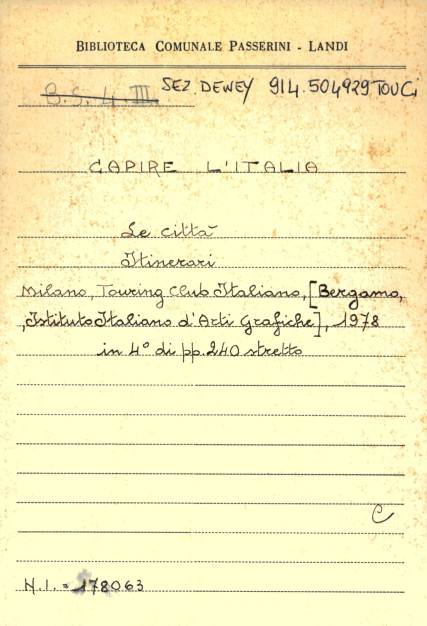 BIBLIOTECA COMUNALE PASSERINI - LANDI
B.S. 4. III. SEZ DEWEY 914.504929 TOUCi
CAPIRE L'ITALIA
Le città
Itinerari
Milano, Touring Club Italiano, [Bergamo,
, Istituto Italiano d'Arti Grafiche], 1978
in 4° di pp. 240 stretto
C
N.I. = 178063